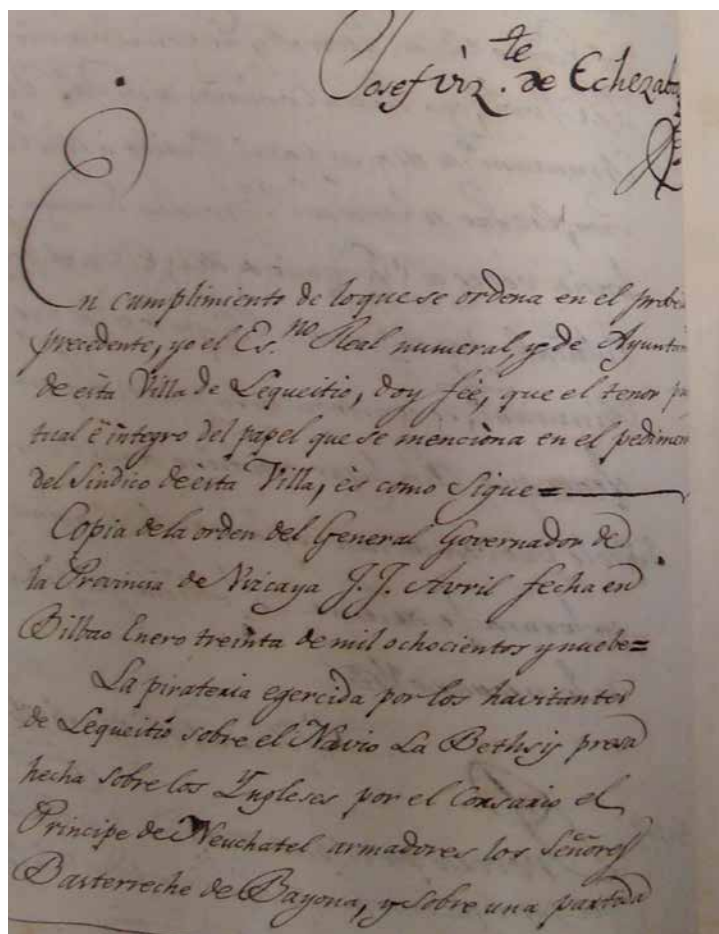 Josef Viz.te de Echezaba
En cumplimiento de loque se ordena en el probei
precedente, yo el Es.no Real numeral, y de Ayuntam
de esta Villa de Lequeitio, doy feè, que el tenor pu
tual è integro del papel que se menciona en el pedimen
del Sindico de èsta Villa, ès como Sigue=
Copia de la orden del General Governador de
la Provincia de Vizcaya J. J. Avril fecha en
Bilbao Enero treinta de mil ochocientos y nuebe=
La pirateria egercida por los havitantes
de Lequeitio sobre el Navio La Bethsiy presa
hecha sobre los Yngleses por el Consario el
Principe de Neuchatel armadores los Señores
Basterreche de Bayona, y sobre una partida